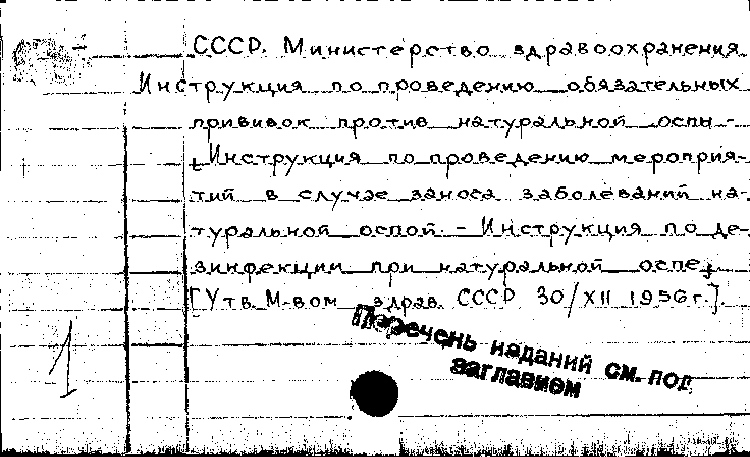 СССР. Министерство здравоохранения
Инструкция по проведению обязательных
прививок против натуральной оспы -
Инструкция по проведению мероприя-
тий в случае заноса заболеваний на-
туральной оспой. - Инструкция по де-
зинфекции при натуральной оспе,
[Утв. М-вом здрав. СССР 30/XII 1956 г.].
Перечень изданий см. под
заглавием
1